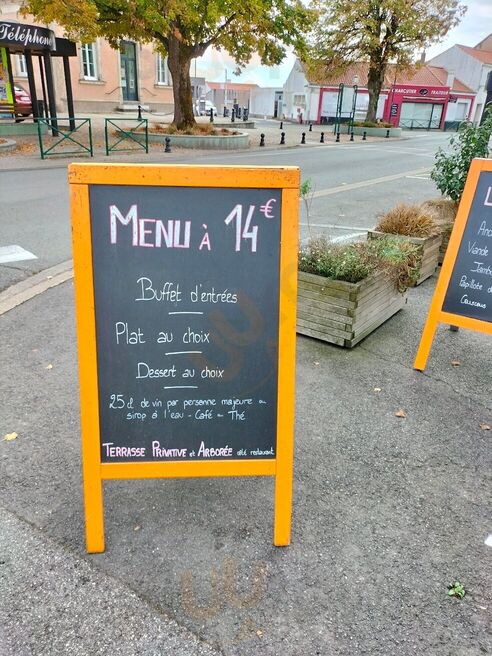 Téléphone
CHARCUTIER TRAITEUR
MENU à 14€
Buffet d'entrées
Plat au choix
Dessert au choix
25 cl de vin par personne majeure ou
sirop à l'eau - Café ou Thé
TERRASSE PRIVATIVE et ARBORÉE côté restaurant
Viande
Papillote de
Couscous